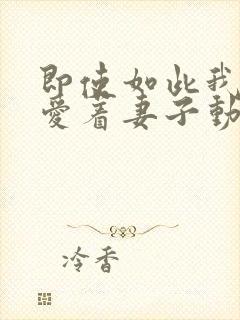 即使如此我
爱着妻子動
冷香